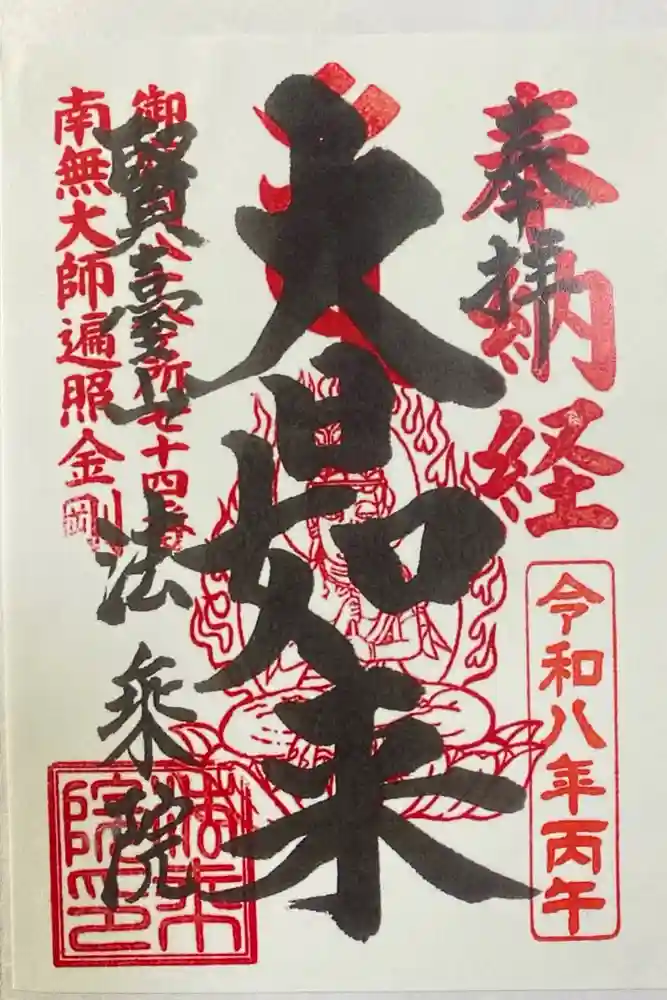 奉拝
納経
令和八年丙午
大日如来
賢臺山 法乗院
御 八ヶ所七十四番
南無大師遍照金剛
法乗院印